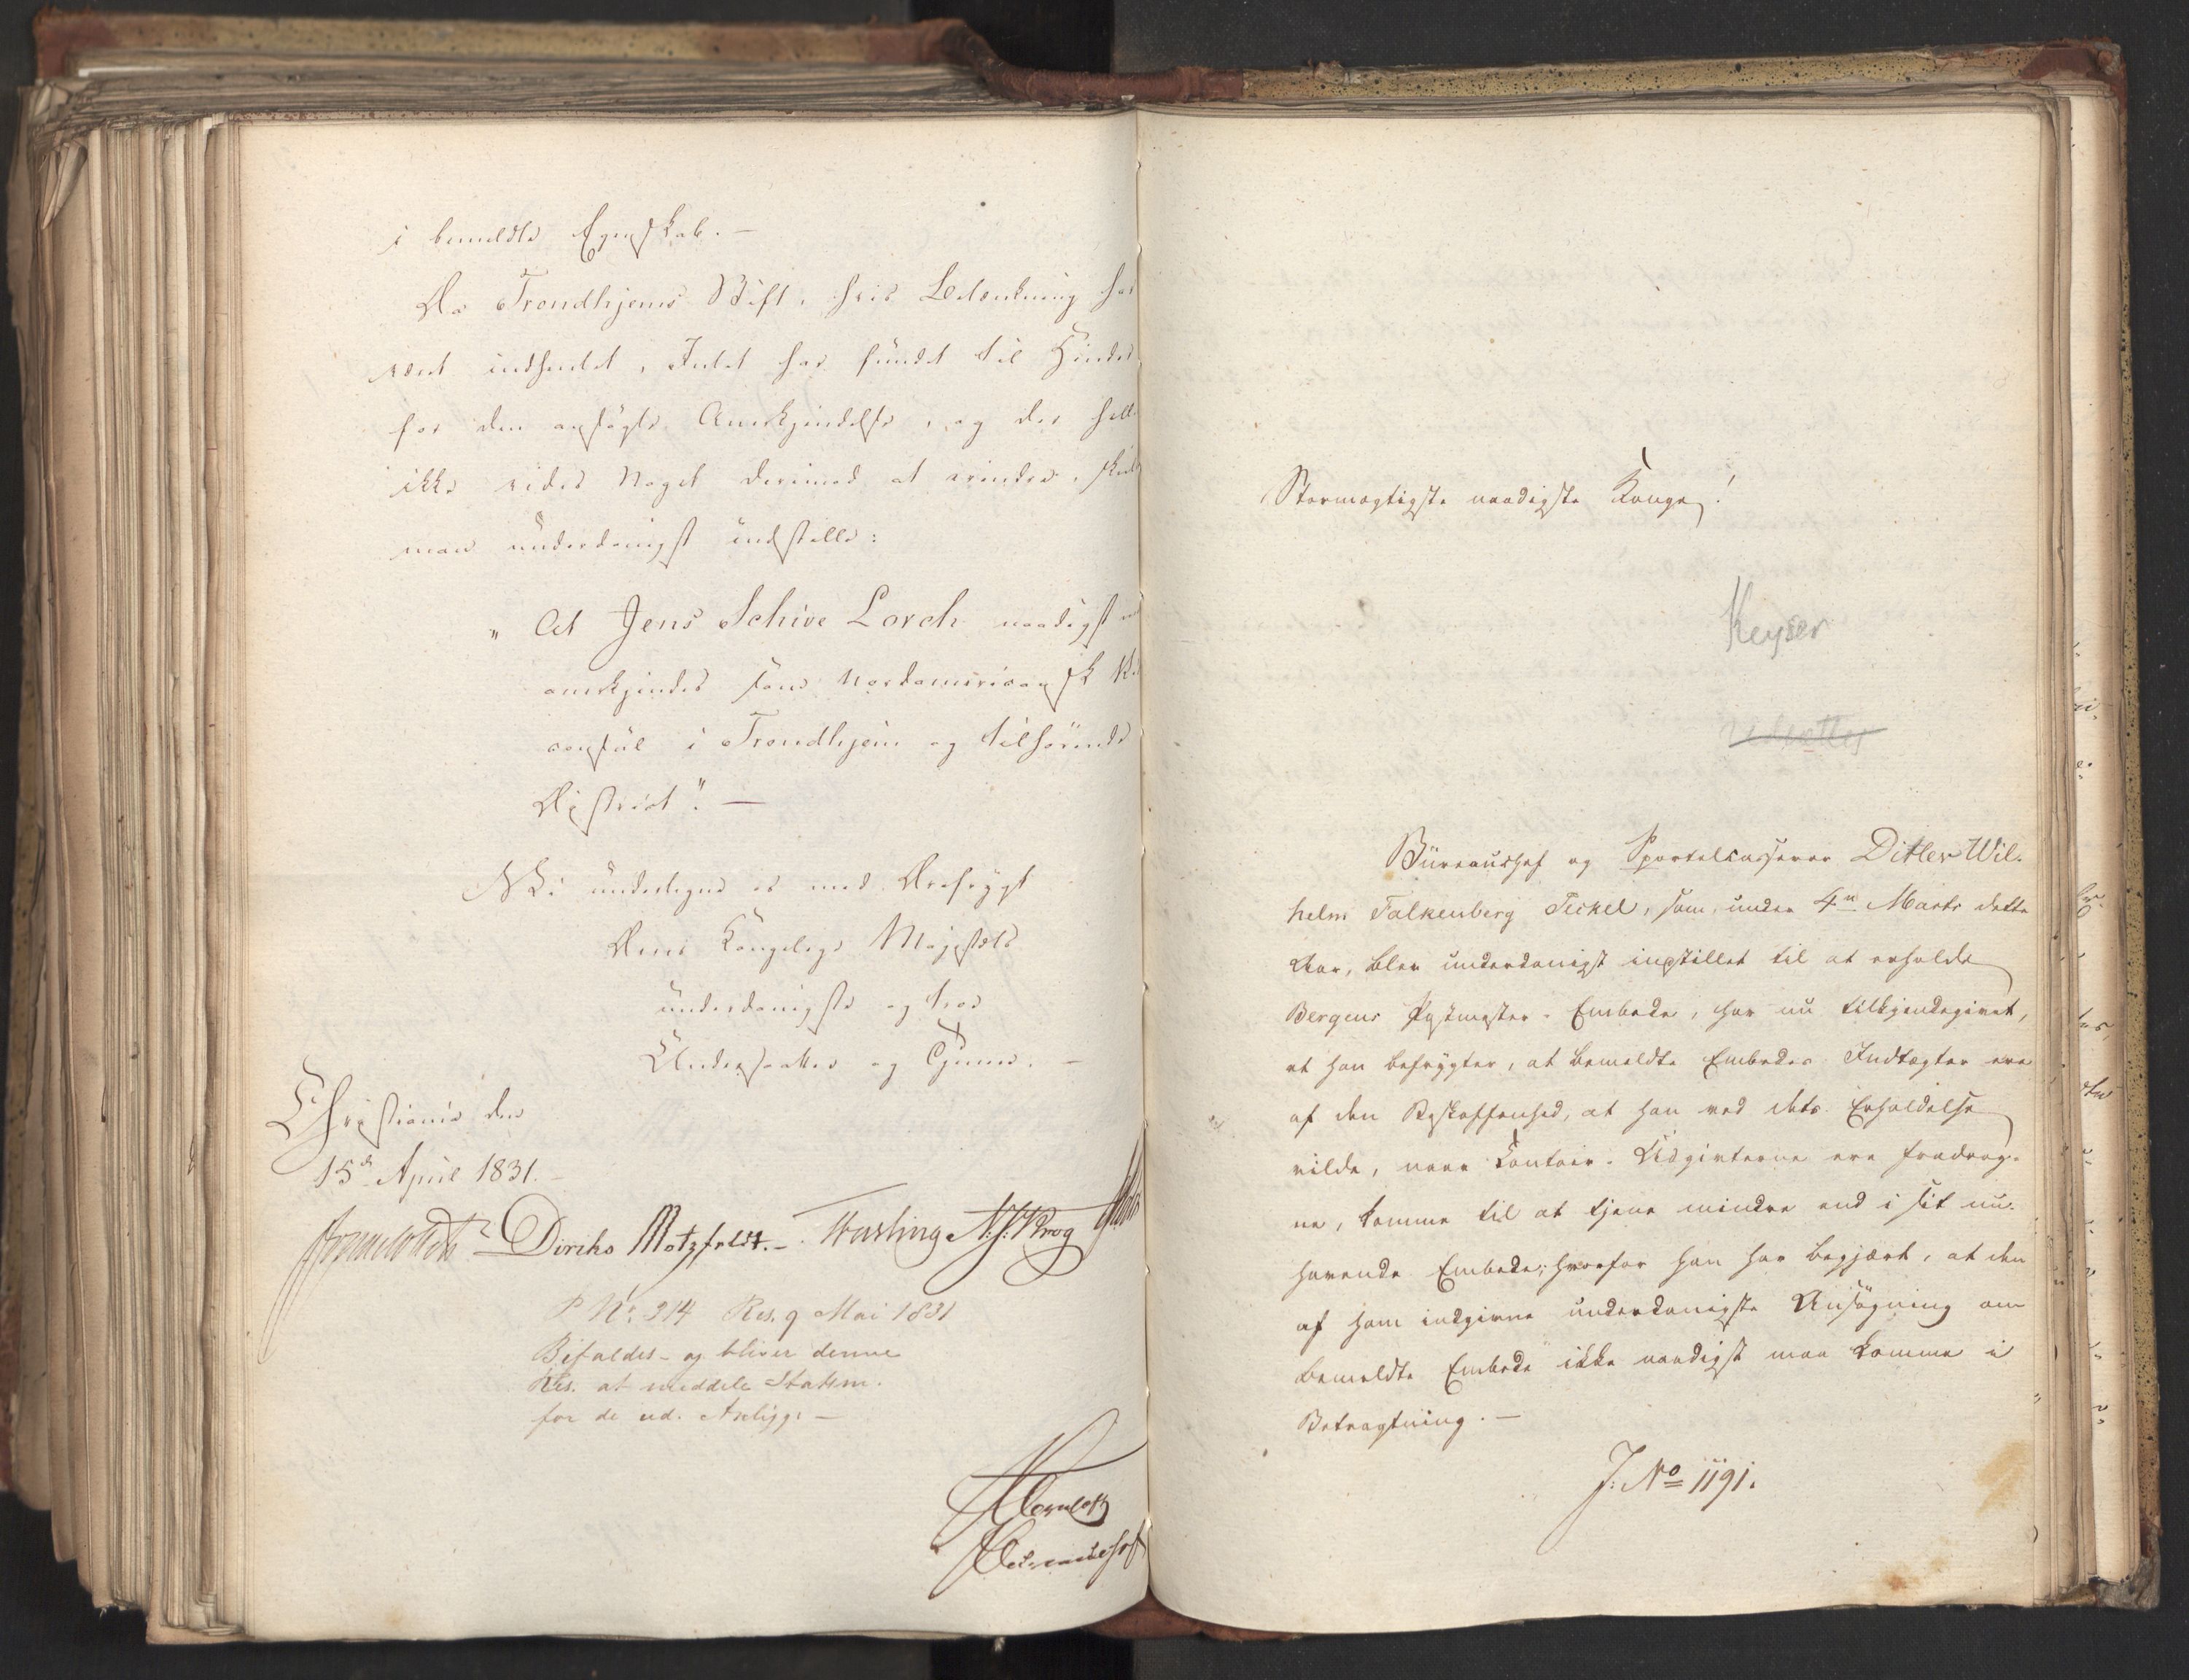 i bemeldte Egenskab. —
Da Trondhjems Stift, hvis Betænkning har
været indhentet, Intet har fundet til Hinder
for den ansøgte Anerkjendelse, og der heller
ikke vides Noget derimod at erindre, skulde
man underdanigst indstille:
„ At Jens Schive Lorch naadigst
anerkjendes som Nordamericansk Vice
consul i Trondhjem og tilhørende
District". —
Vi undertegne os med Ærefrygt
Deres Kongelige Majestæts
underdanigste og troe
Undersaatter og Tjenere. —
Christiania den
15de April 1831. —
Diriks Motzfeldt. — Fasting N. J. Krog
P No. 314 Res. 9 Mai 1831
Bifaldes – og bliver denne
Res. at meddele Statsm.
for de ud. Anligg. —
Bureauchef
Stormægtigste naadigste Konge!
Keyser
Büreauchef og Sportelcasserer Ditlev Wil-
helm Falkenberg Jeckel, som, under 4de Marts dette
Aar, blev underdanigst indstillet til at erholde
Bergens Postmester-Embede, har nu tilkjendegivet,
at han befrygter, at bemeldte Embedes Indtægter ere
af den Beskaffenhed, at han ved dets Erholdelse
vilde, naar Contoir-Udgivterne ere fradrag-
ne, komme til at tjene mindre end i sit nu-
havende Embede; hvorfor han har begjært, at den
af ham indgivne underdanigste Ansøgning om
bemeldte Embede ikke naadigst maa komme i
Betragtning. —
J: No 1191.